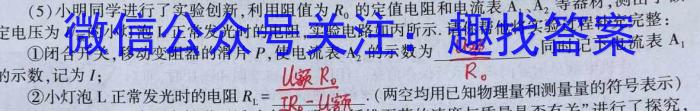 (5)小明同学进行了实验创新,利用阻值为R₀的定值电阻和电流表A₁、A₂等器材,测出了
定电压为 的小灯泡L正常发光时的电阻,实验电路如 丙所示.请你帮他将实验过程补充完整:
微信公众号关注:趣找答案
①闭合开关,移动变阻器的滑片P,使电流表A₂的示数为 U额/R₀ 同时记下电流表A₁
的示数,记为I;
②小灯泡L正常发光时的电阻R_L= U额R₀/IR₀-U额 .(两空均用已知物理量和测量量的符号表示)